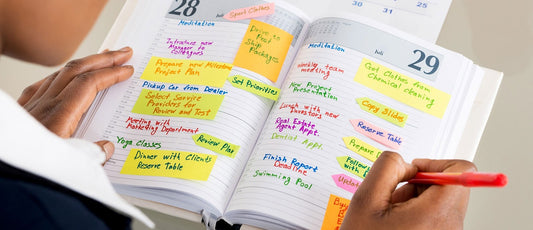 28
Juli
Spot Calls
Meditation
Introduce new
Manager to
Colleagues
Drive to
Post
Ship
Packages
Prepare new Milestone
Project Plan
Pick up Car from Dealer
Set Priorities
Select Service
Providers for
Review and Test
Meeting with
Marketing Department
Review Plan
Yoga Classes
Dinner with Clients
Reserve Table
30
31
25
Juli
29
Meditation
Weekly team
meeting
Get Clothes from
Chemical cleaning
New Project
Presentation
Copy Slides
Lunch with new
Investors
Prepare
Reserve Table
Real Estate
Agency Appt.
Dentist Appt.
Prepare
Follow up
with
Finish Report
Deadline
Swimming Pool
Update
Buy